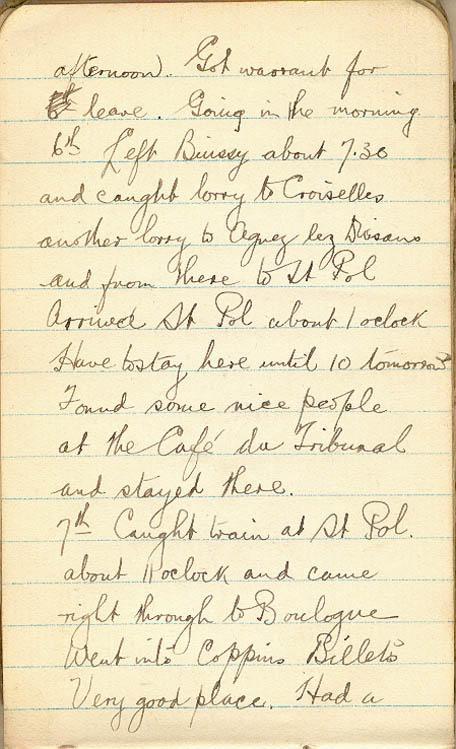 afternoon. Got warrant for
leave. Going in the morning
6th Left Buissy about 7.30
and caught lorry to Croiselles
another lorry to Agnez lez Duisans
and from there to St Pol
Arrived St Pol about 1 oclock
Have to stay here until 10 tomorrow
Found some nice people
at the Café du Tribunal
and stayed there.
7th Caught train at St Pol.
about 11 oclock and came
right through to Boulogne
Went into Coppins Billets
Very good place. Had a